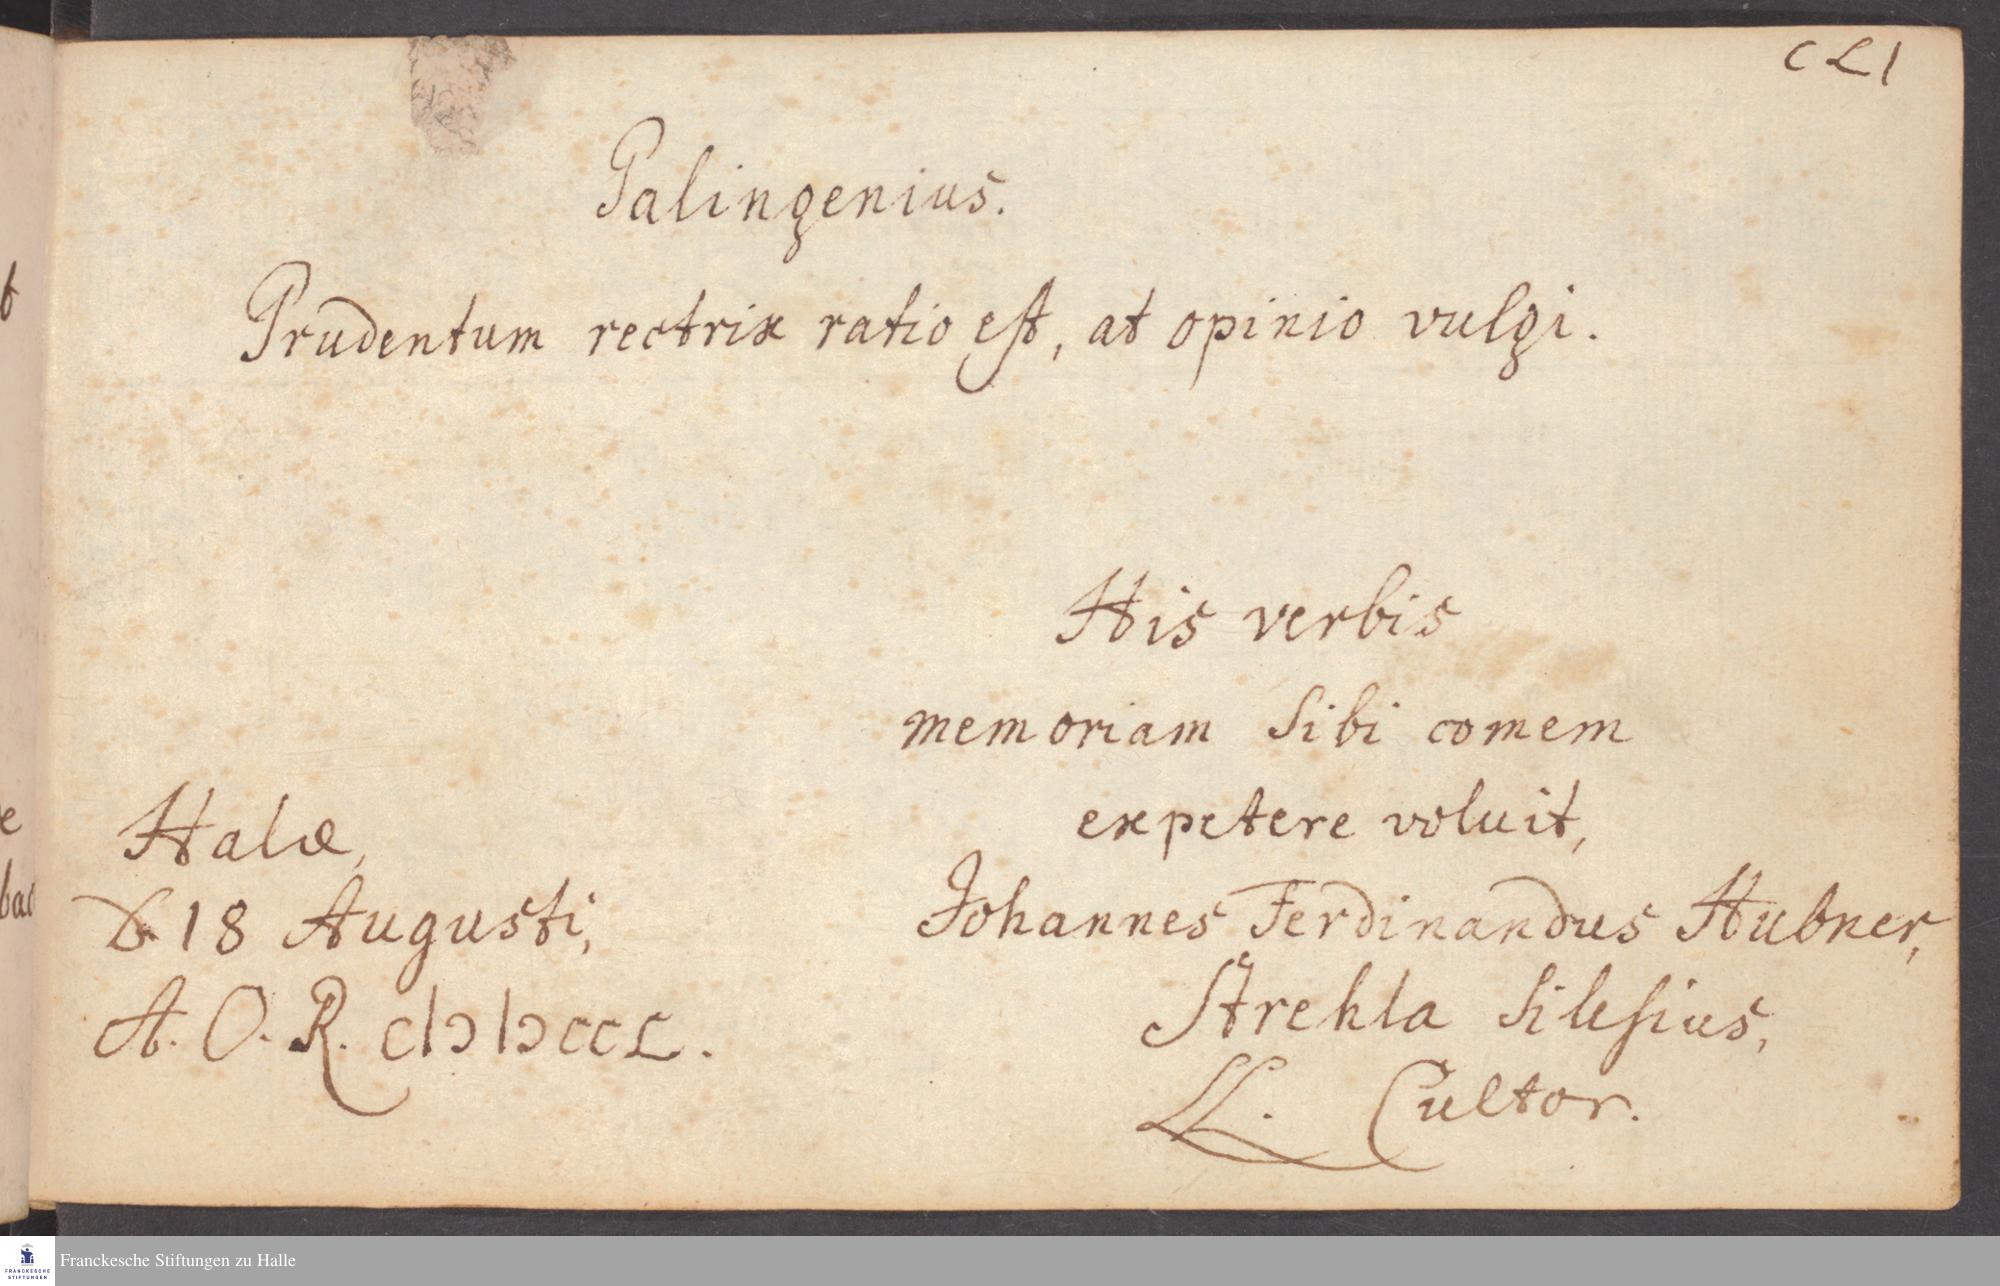 CLI
Palingenius.
Prudentum rectrix ratio est, at opinio vulgi.
His verbis
memoriam sibi comem
expetere voluit,
Johannes Ferdinandus Hubner,
Strehla Silesius,
LL. Cultor.
Halæ,
D. 18 Augusti,
A. O. R. cIɔ Iɔccc L.
b
e
bac
Franckesche Stiftungen zu Halle
FRANCKESCHE
STIFTUNGEN